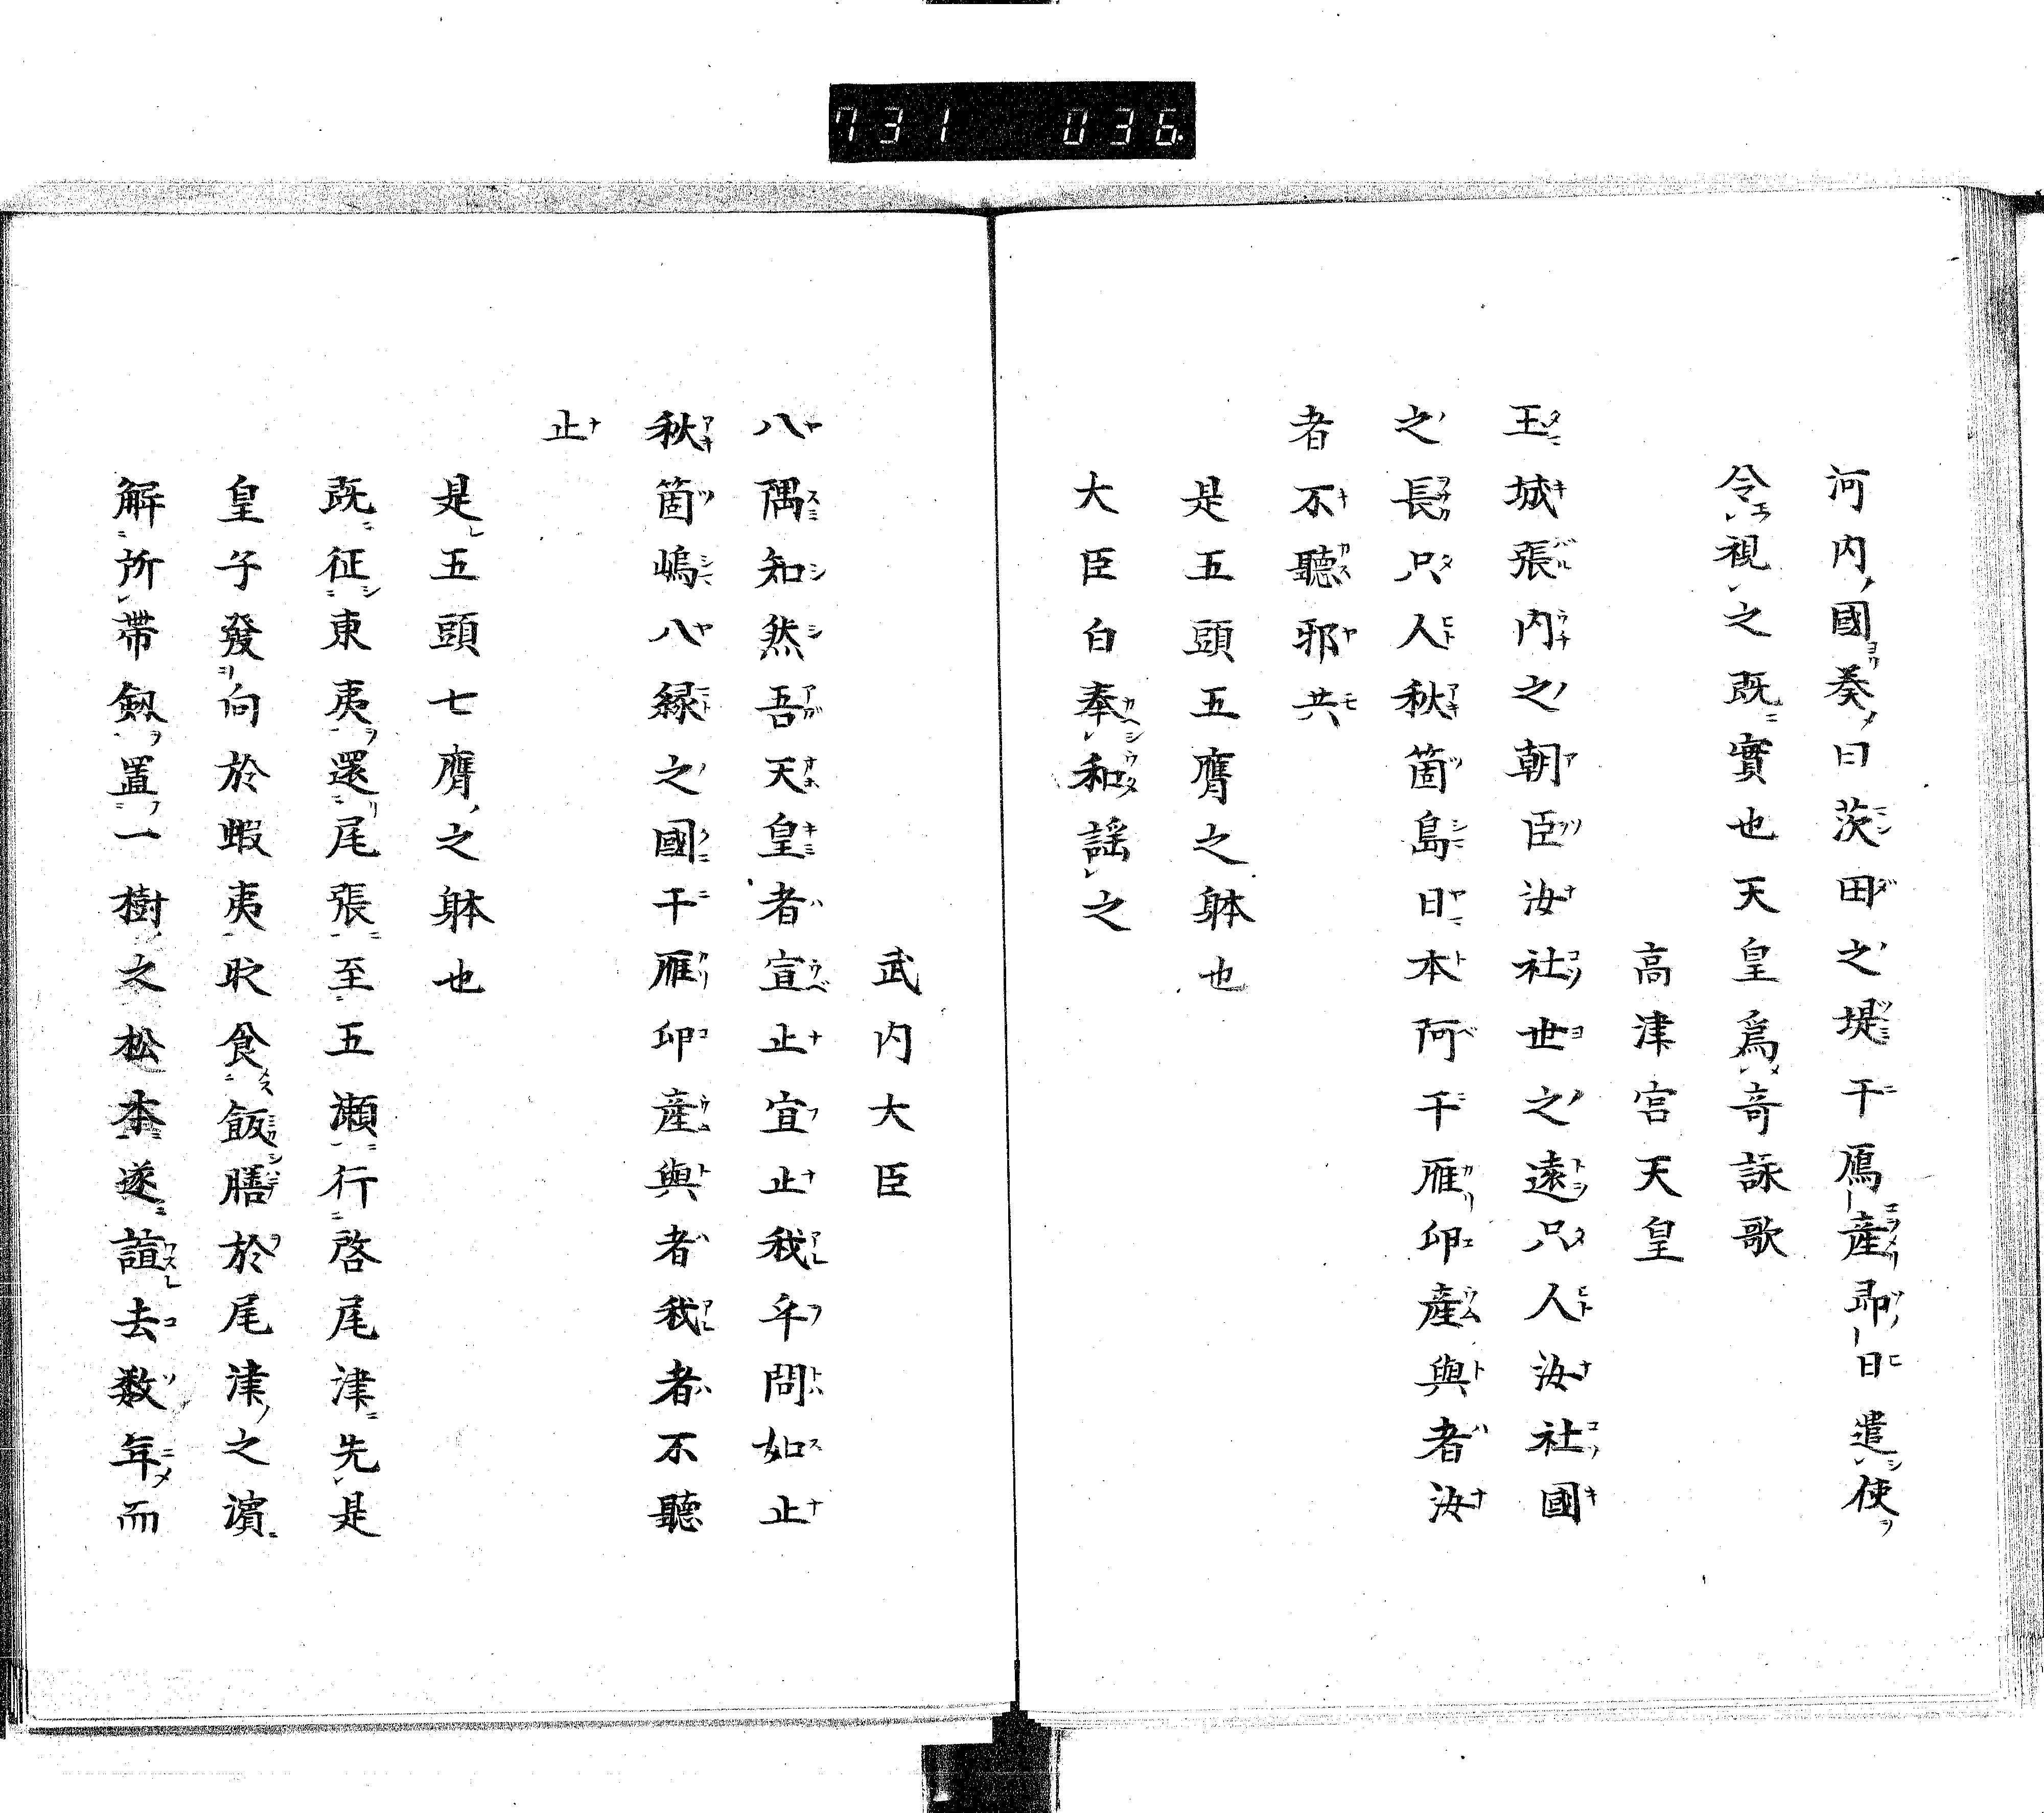 731 036
河内國奏曰茨田之堤干鴈産即日遣使
令視之既實也天皇爲奇詠歌
高津宮天皇
王城張内之朝臣汝社世之遠只人汝社國
之長只人秋箇島日本阿千雁卵産與者汝
者不聽邪共
是五頭五膺之躰也
大臣白奉和謡之
武内大臣
八隅知然吾天皇者宣止宜止我乎問如止
秋箇嶋八縁之國干雁卵産與者我者不聽
止
是五頭七膺之躰也
既征東夷還尾張至五瀬行啓尾津先是
皇子發向於蝦夷欤食飯膳於尾津之濱
解所帯劔置一樹之松本遂諠去数年而